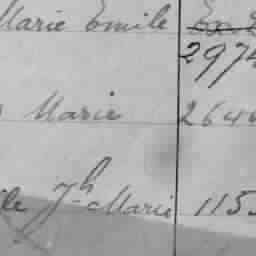 Marie Emile
2974
Marie 264
Jh Marie 115